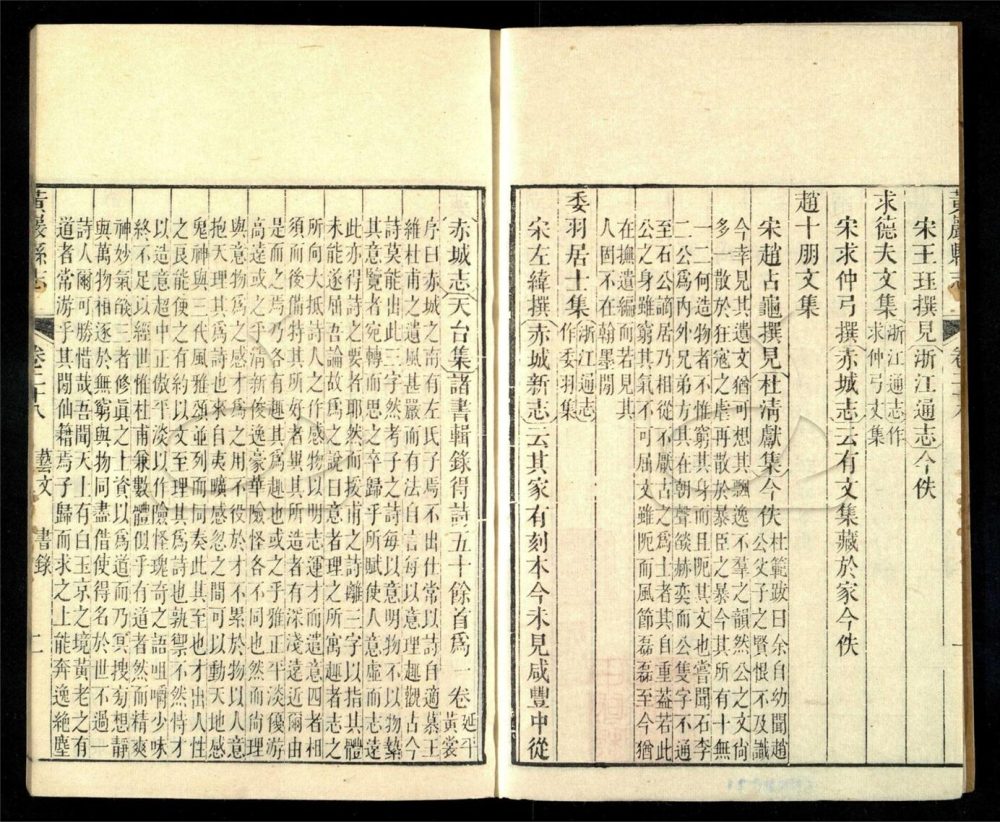 黃巖縣志
卷二十八
宋王珏撰見浙江通志今佚
求德夫文集浙江通志作
求仲弓文集
宋求仲弓撰赤城志云有文集藏於家今佚
趙十朋文集
宋趙占龜撰見杜清獻集今佚杜範跋曰余自幼聞趙
公父子之賢恨不及識
今幸見其遺文猶可想其飄逸不羣之韻然公之文尙
多一散於狂寇之虐再散於暴臣之暴今其所存十無
一二何造物者不惟窮其身而且阨其文也嘗聞石李
二公爲內外兄弟方其在朝聲燄赫奕而公隻字不通
至石公謫居乃相從不厭古之爲士者其自重葢若此
公之身雖窮其氣不可屈文雖阨而風節磊磊至今猶
在摭遺編而若見其
人固不在翰墨閒
委羽居士集浙江通志
作委羽集
宋左緯撰赤城新志云其家有刻本今未見咸豐中從
赤城志天台集諸書輯錄得詩五十餘首爲一卷延平
黃裳
序曰赤城之南有左氏子焉不出仕常以詩自適慕王
維杜甫之遺風甚嚴而有法自言每以意理趣觀古今
詩莫能出此三字然考子之詩每以意明物不以物蘂
其意覽者宛轉而思之卒歸乎所賦使人意虛而志遠
此亦得詩之要者耶然而援甫之詩離三字以指其體
未能遂屈吾論故爲之說曰意者理之所寓趣者志之
所向大抵詩人之作感物以明志運才而遣意四者相
須而後備特其所好者異其所造者有深淺遠近爾由
是而之焉乃各有趣其爲趣也或之乎雅正平淡優游
高遠或之乎清新俊逸豪華險怪各不同也然而尙理
與意物爲之感才爲之用不役於才不累於物以人意
抱天理其爲詩也來自夷曠感忽之間可以動天地感
鬼神與三代風雅頌並列而同奏此其至也才出人性
之良能使之有約以文至理其爲詩也孰禦不然恃才
以造意超中正傲平淡以作險怪瑰奇之語咀嚼少味
終不足以經世惟杜甫兼數體似乎有道者然而精爽
神妙氣燄三者修眞之士資以爲道而乃冥搜苟想靜
與萬物相逐於無窮與物同盡借使得名於世不過一
詩人爾可勝惜哉吾聞天上有白玉京之境黃老之有
道者常游乎其閒仙籍焉子歸而求之上能奔逸絶塵
黃巖縣志
卷二十八
藝文
書錄
二